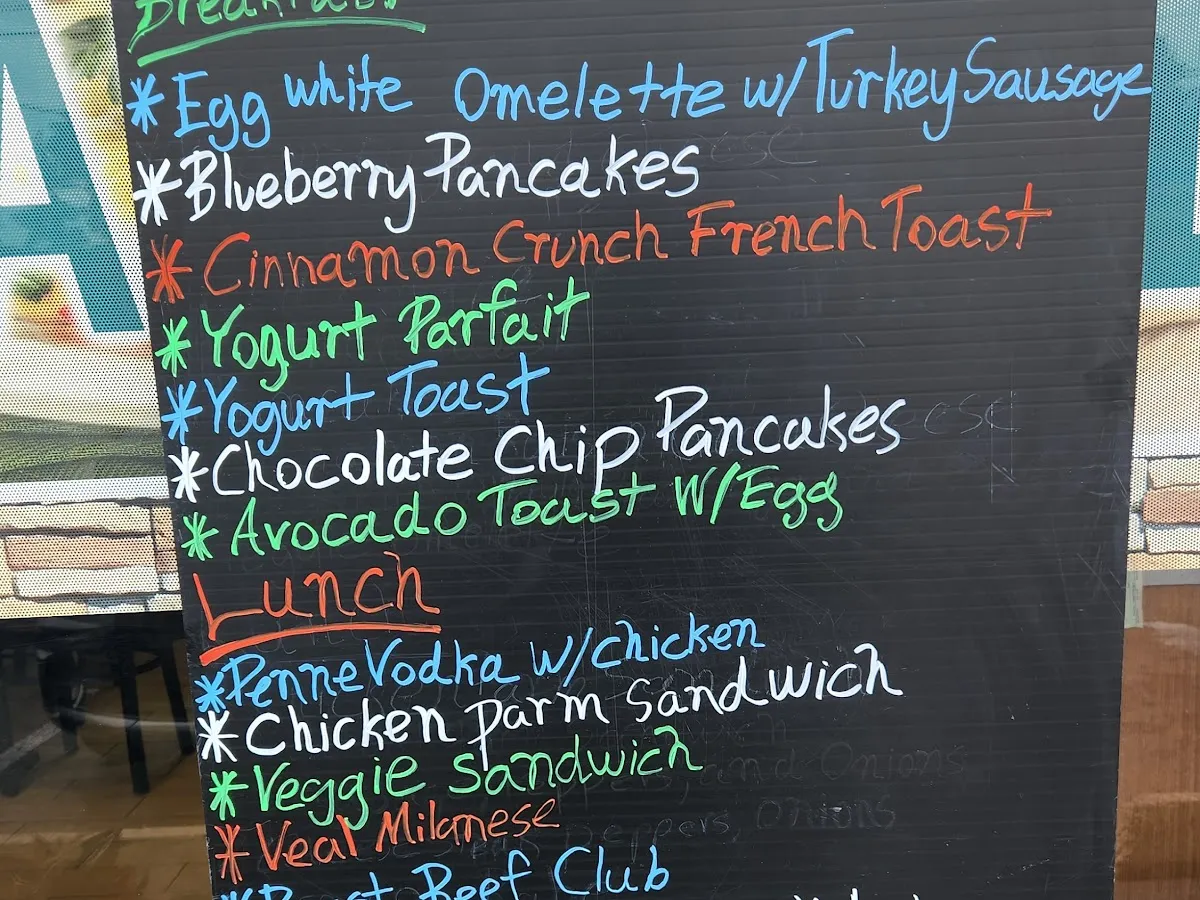 Breakfast
* Egg white Omelette w/Turkey Sausage
* Blueberry Pancakes
* Cinnamon Crunch French Toast
* Yogurt Parfait
* Yogurt Toast
* Chocolate Chip Pancakes
* Avocado Toast W/Egg
Lunch
* Penne Vodka w/chicken
* Chicken parm sandwich
* Veggie sandwich
* Veal Milanese
* Roast Beef Club